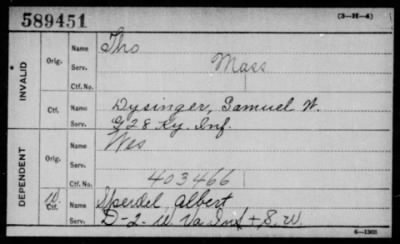 589451
(3—H—4)
INVALID
Orig.
Name Tho
Serv. Mass
Ctf. No.
Ctf.
Name Dysinger, Samuel W.
Serv. G 28 Ky. Inf.
DEPENDENT
Orig.
Name Wes
Serv.
Ctf. No. 403466
W.
Ctf.
Name Sperdel Albert
Serv. D-2-W Va Inf + S.W.
6—1302